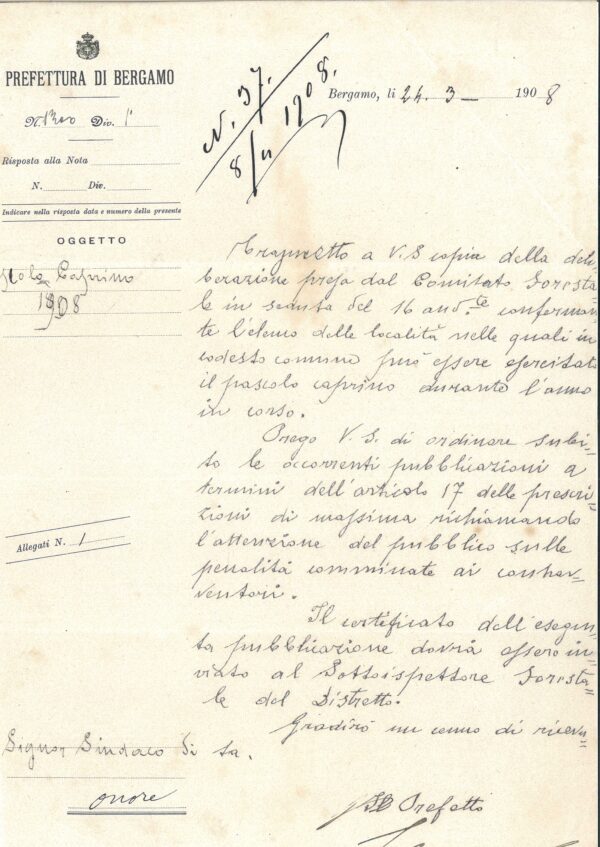 PREFETTURA DI BERGAMO
N. 1300 Div. 1ª
Risposta alla Nota
N. Div.
Indicare nella risposta data e numero della presente
OGGETTO
Caprino
1908
Allegati N. 1
Signor Sindaco di
onore
N. 37.
8/ 1908.
Bergamo, lì 24. 3 - 1908
Trasmetto a V. S copia della deli=
berazione presa dal Comitato Foresta=
le in seduta del 16 and.te conferman=
te l'elenco delle località nelle quali in
codesto comune può essere esercitato
il pascolo caprino durante l'anno
in corso.
Prego V. S. di ordinare subi=
to le occorrenti pubblicazioni a
termini dell'articolo 17 delle prescri=
zioni di massima richiamando
l'attenzione del pubblico sulle
penalità comminate ai contrav=
ventori.
Il certificato dell'esegui=
ta pubblicazione dovrà essere in=
viato al Sottoispettore Foresta=
le del Distretto.
Gradirò un cenno di ricevu=
ta.
Il Prefetto